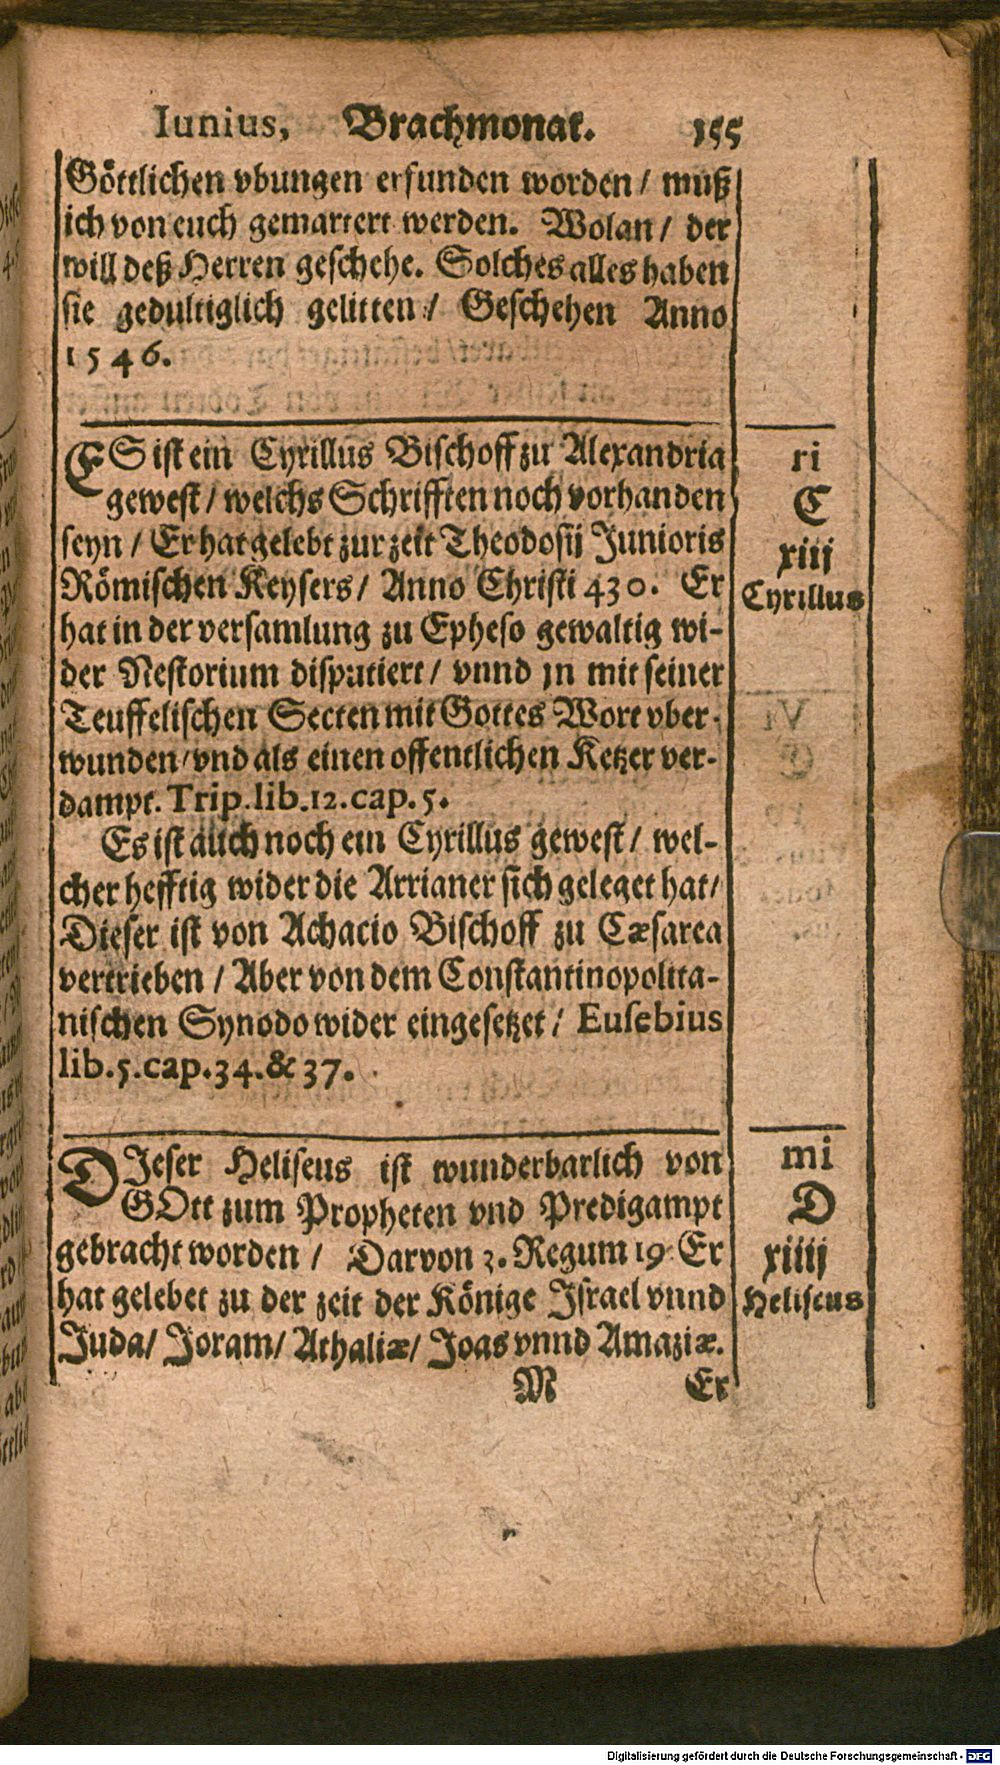 Iunius, Brachmonat. 155
Göttlichen vbungen erfunden worden / muß
ich von euch gemartert werden. Wolan / der
will deß Herren geschehe. Solches alles haben
sie gedultiglich gelitten / Geschehen Anno
1546.
ES ist ein Cyrillus Bischoff zu Alexandria
gewest / welchs Schrifften noch vorhanden
seyn / Er hat gelebt zur zeit Theodosij Junioris
Römischen Keysers / Anno Christi 430. Er
hat in der versamlung zu Epheso gewaltig wi-
der Nestorium disputiert / vnnd jn mit seiner
Teuffelischen Secten mit Gottes Wort vber-
wunden / vnd als einen offentlichen Ketzer ver-
dampt. Trip. lib. 12. cap. 5.
Es ist auch noch ein Cyrillus gewest / wel-
cher hefftig wider die Arrianer sich geleget hat /
Dieser ist von Achacio Bischoff zu Cæsarea
vertrieben / Aber von dem Constantinopolita-
nischen Synodo wider eingesetzet / Eusebius
lib. 5. cap. 34. & 37.
ri
C
xiij
Cyrillus
DJeser Heliseus ist wunderbarlich von
GOtt zum Propheten vnd Predigampt
gebracht worden / Darvon 3. Regum 19. Er
hat gelebet zu der zeit der Könige Israel vnnd
Juda / Joram / Athaliæ / Joas vnnd Amaziæ.
mi
D
xiiij
Heliseus
M Er
Digitalisierung gefördert durch die Deutsche Forschungsgemeinschaft - DFG